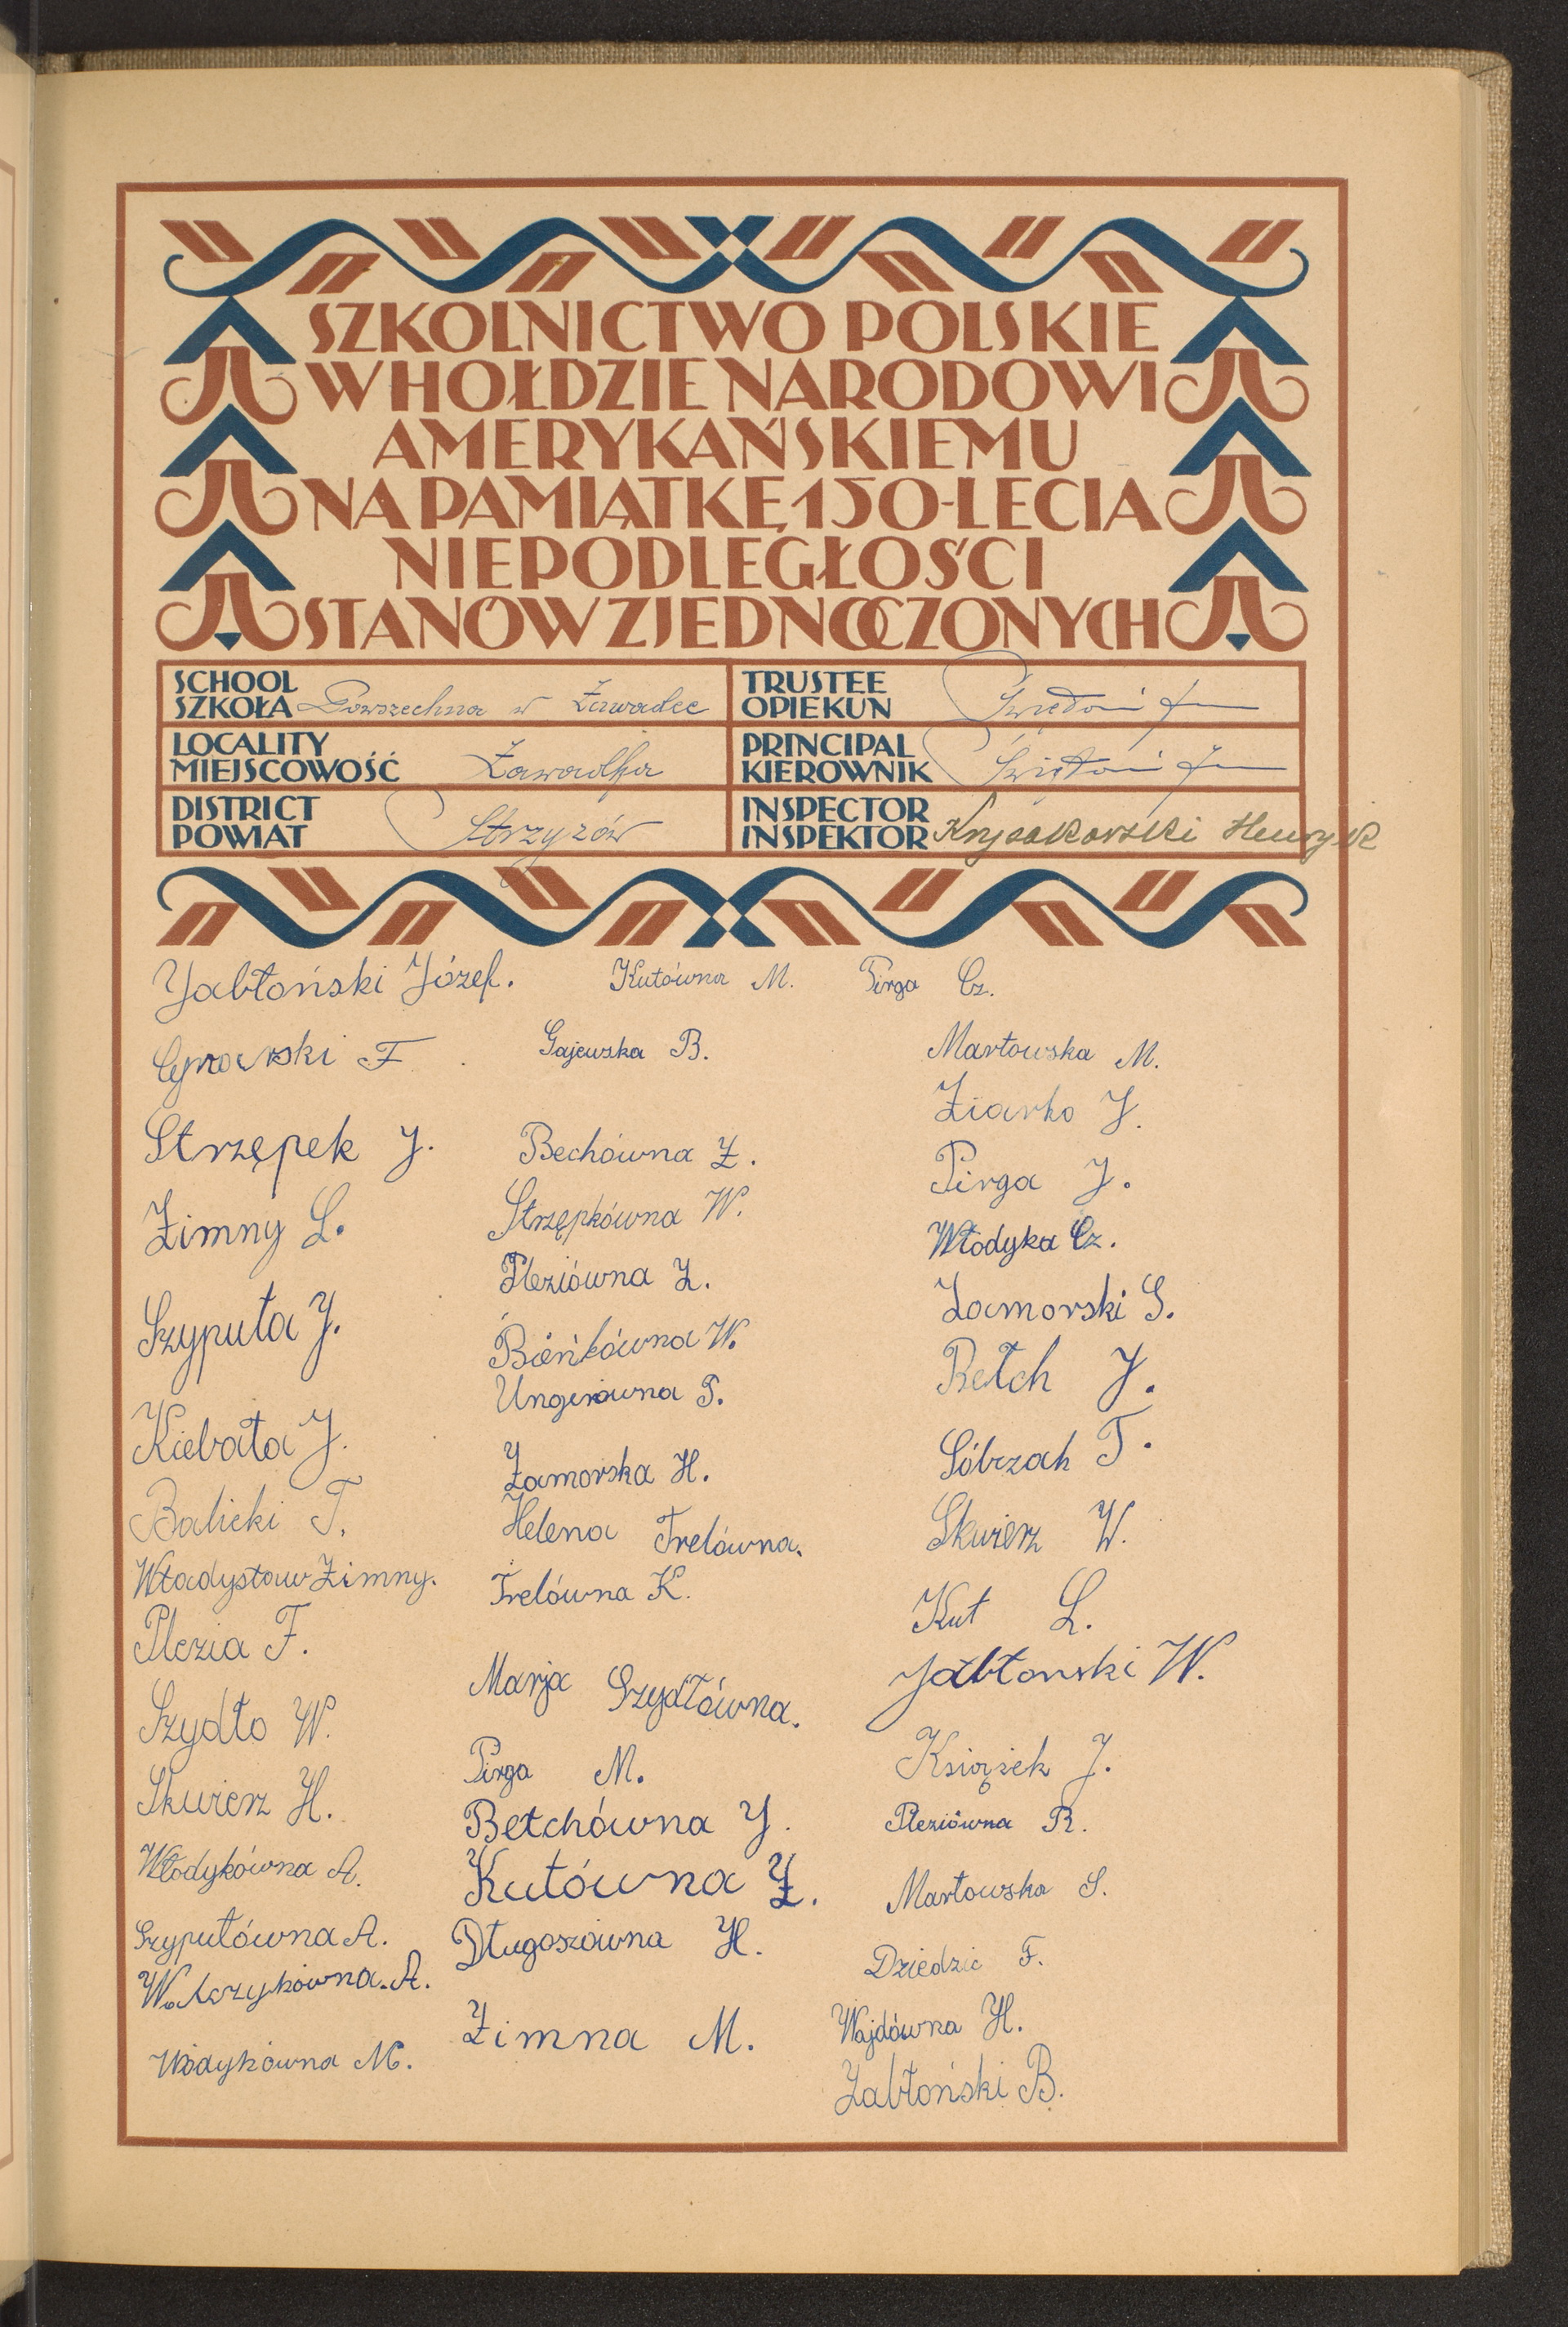 SZKOLNICTWO POLSKIE
W HOŁDZIE NARODOWI
AMERYKAŃSKIEMU
NA PAMIĄTKĘ 150-LECIA
NIEPODLEGŁOŚCI
STANÓW ZJEDNOCZONYCH
SCHOOL
SZKOŁA Powszechna w Zawadce
LOCALITY
MIEJSCOWOŚĆ Zawadka
DISTRICT
POWIAT Strzyżów
TRUSTEE
OPIEKUN
PRINCIPAL
KIEROWNIK
INSPECTOR
INSPEKTOR Henryk
Jabłoński Józef.
Strzępek J.
Zimny L.
Szyputa J.
Kiebała J.
Balicki T.
Władysław Zimny.
Plezia F.
Szydło W.
Skwierz H.
Włodykówna A.
Szyputówna A.
Włodykówna M.
Kutówna M.
Gajewska B.
Bechówna Z.
Strzępkówna W.
Pleziówna Z.
Bieńkówna W.
Ungerówna S.
Zamorska H.
Helena Trelówna.
Trelówna K.
Marja Szydłówna.
Pirga M.
Betchówna J.
Kutówna Z.
Długoszówna H.
Zimna M.
Pirga Cz.
Martowska M.
Ziarko J.
Pirga J.
Włodyka Cz.
Zamorski S.
Betch J.
Skwierz W.
Kut L.
Jabłonski W.
Książek J.
Pleziówna R.
Martowska S.
Dziedzic F.
Wajdówna H.
Jabłoński B.